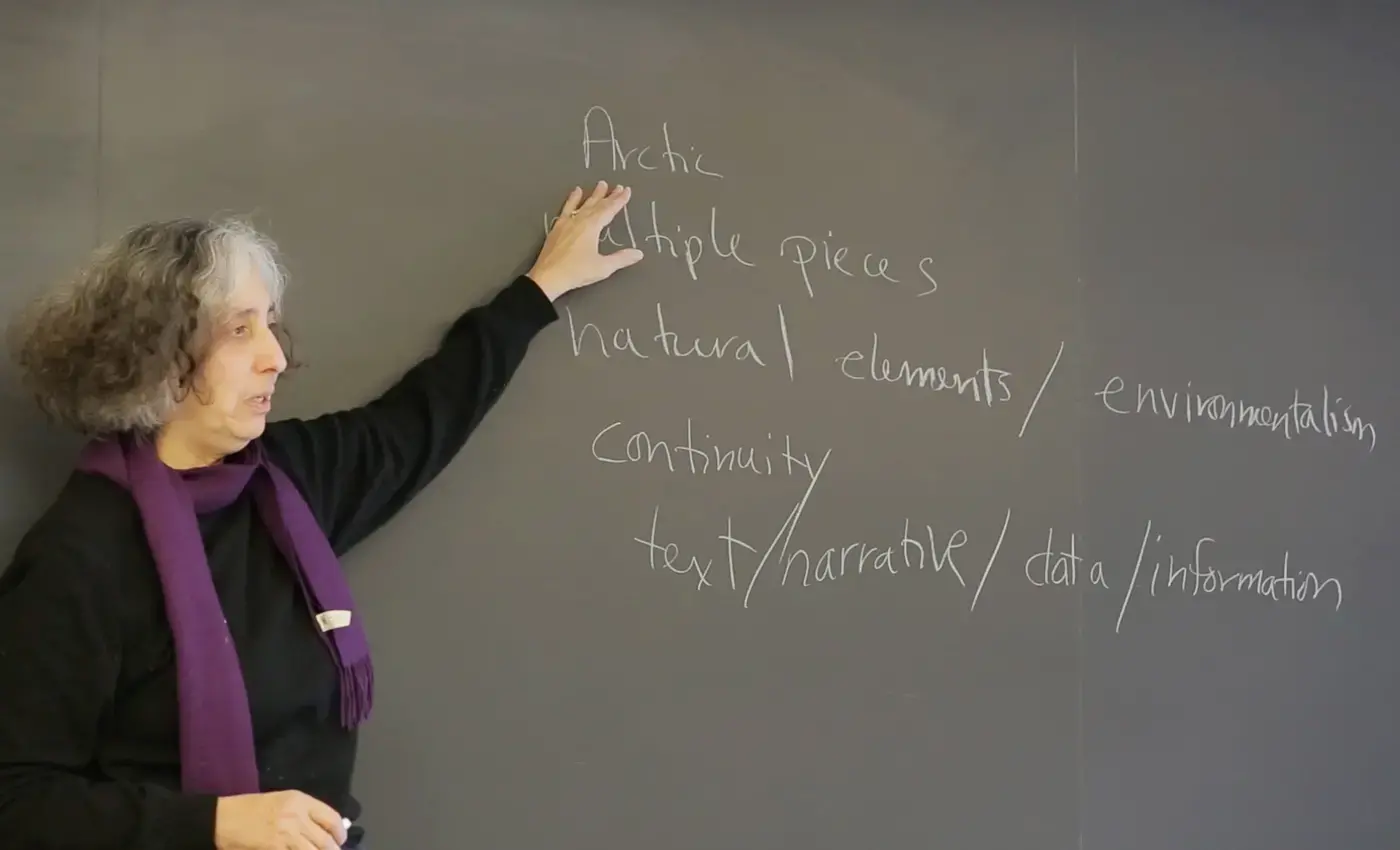 Arctic
multiple pieces
natural elements / environmentalism
continuity
text/narrative/ data /information